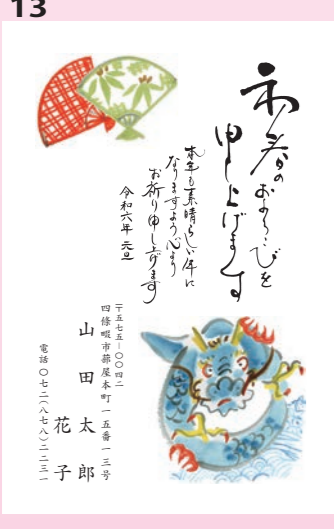 13
初春のおよろこびを
申し上げます
本年も素晴らしい年に
なりますよう心より
お祈り申し上げます
令和六年 元旦
〒五七五-〇〇四二
四條畷市蔀屋本町一五番一三号
山田太郎
花子
電話〇七二(八七八)二二三一